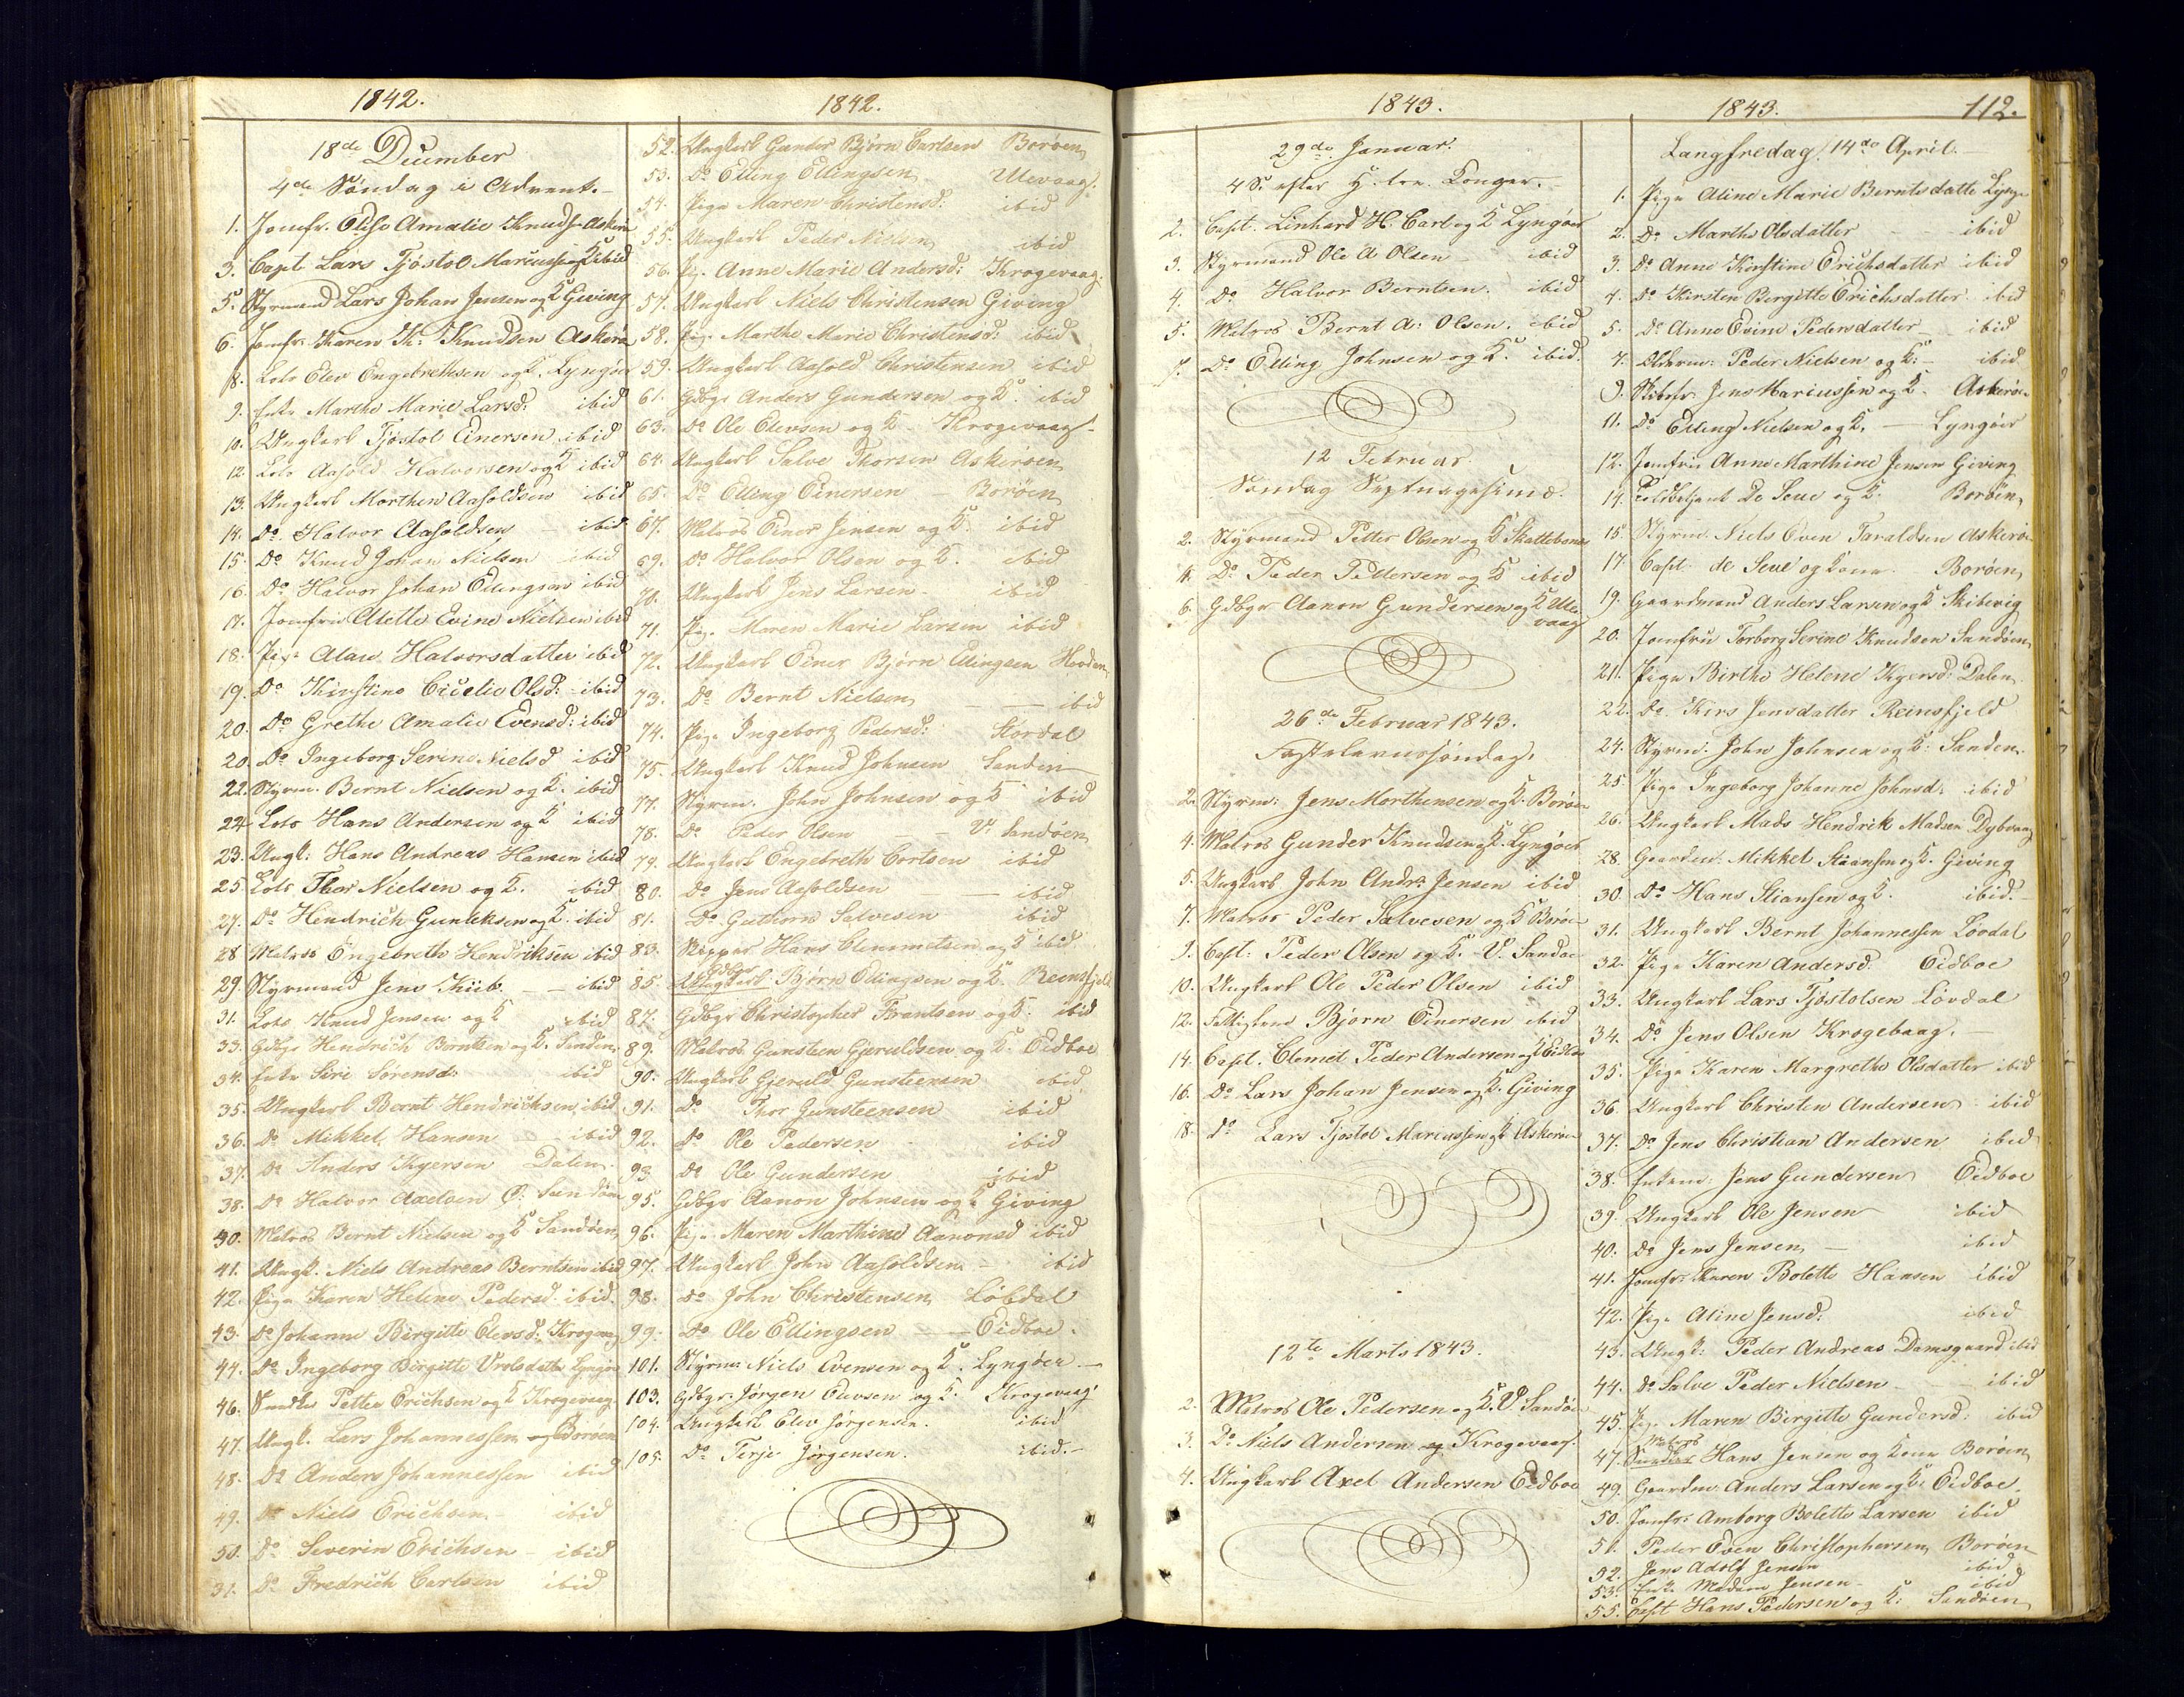 1842.
18de December
4de Søndag i Advent.
1. Jomfr. Elise Amalie Knuds. Askerø
3. Capt Lars Tjøstol Mariussen og K ibid
5. Styrmand Lars Johan Jensen og K Giving
6. Jomfr. Karen Kn: Knudsen Askerø
8. Lots Elev Engebrethsen og K. Lyngøer
9. Enke Marthe Marie Larsd: ibid
10. Ungkarl Tjøstol Einersen ibid
12. Lots Aasold Halvorsen og K ibid
13. Ungkarl Morthen Aasoldsen ibid
14. Do Halvor Aasoldsen ibid
15. Do Knud Johan Nielsen ibid
16. Do Halvor Johan Ellingsen ibid
17. Jomfrue Alette Evine Nielsen ibid
18. Pige Halvorsdatter ibid
19. Do Kirstine Cicelie Olsd: ibid
20. Do Grethe Amalie Evensd: ibid
20. Do Ingeborg Serine Nielsd ibid
22. Styrm. Bernt Nielsen og K. ibid
24. Lots Hans Andersen og K ibid
23. Ungk: Hans Andreas Hansen ibid
25. Lots Thor Nielsen og K. ibid
27. Do Hendrich Gunleksen og K. ibid
28 Matros Engebreth Hendriksen ibid
29. Styrmand Jens ibid
31. Lots Knud Jensen og K ibid
33. Gdbgr Hendrich Berntsen og K. Sanden
34. Enke Siri Sørensd: ibid
35. Ungkarl Bernt Hendrichsen ibid
36. Do Mikkel Hansen ibid
37. Do Anders Dalen
38. Do Halvor Axelsen Ø: Sandøen
40. Matros Bernt Nielsen og K Sandøen
41. Ungk. Niels Andreas Berntsen ibid
42. Pige Karen Helene Pedersd. ibid.
43. Do Johanne Birgitte Elevsd: Krogevaag
44. Do Ingeborg Birgitte Lyngør
46. Petter Erichsen og K Krogevaag
47. Ungk. Lars Johannessen og Borøen
48. Do Anders Johannessen ibid
49. Do Niels Erichsen ibid
50. Do Severin Erichsen ibid
51. Do Fredrich Carlsen ibid
1842.
52. Ungkarl Gunder Bjørn Carlsen Borøen
53. Do Elling Ellingsen Ulevaag.
54. Pige Maren Christensd: ibid
55. Ungkarl Peder Nielsen ibid
56. Pi. Anne Marie Andersd: Krogevaag.
57. Ungkarl Niels Christensen Giving
58. Pige Marthe Marie Christensd: ibid
59. Ungkarl Aasold Christensen ibid
61. Gdbgr Anders Gundersen og K. ibid
63. Do Ole Elevsen og K. Krogevaag
64. Ungkarl Salve Thorsen Askerøen
65. Do Elling Einersen Borøen
67. Matros Einer Jensen og K. ibid
69. Do Halvor Olsen og K. ibid
70. Ungkarl Jens Larsen ibid
71. Pige Maren Marie Larsen ibid
72. Ungkarl Einer Bjørn Ellingsen
73. Do Bernt Nielsen ibid
74. Pige Ingeborg Pedersd: Stordal
75. Ungkarl Knud Johnsen Sanden
77. Styrm. John Johnsen og K ibid
78. Do Peder Olsen V. Sandøen
79. Ungkarl Engebreth Cortsen ibid
80. Do Jens Aasoldsen ibid
81. Do Guthorm Salvesen ibid
83. Skipper Hans Clemmetsen og K ibid.
85. Gdbgr Ungkarl Bjørn Ellingsen og K. Reensfjeld
87. Gdbgr Christopher Frantsen og K. ibid
89. Matros Gunsteen Gjeruldsen og K. Eidboe
90. Ungkarl Gjeruld Gunsteensen ibid
91. Do Thor Gunsteensen ibid
92. Do Ole Pedersen ibid
93. Do Ole Gundersen ibid
95. Gdbgr Aanon Johnsen og K Giving
96. Pige Maren Marthine Aanonsd ibid
97. Ungkarl John Aasoldsen ibid
98. Do John Christensen Løbdal
99. Do Ole Ellingsen Eidboe.
101. Styrm: Niels Evensen og K. Lyngøer
103. Gdbgr. Jørgen Elevsen og K. Krogevaag
104. Ungkarl Elev Jørgensen. ibid
105. Do Terje Jørgensen. ibid.
1843.
29de Januar.
4 S. efter H. tre Konger.
2. Capt. Linhard H. Carl og K Lyngøer
3. Styrmand Ole A Olsen ibid
4. Do Halvor Berntsen. ibid
5. Matros Bernt A: Olsen. ibid
7. Do Elling Johnsen og K. ibid.
12 Februar.
Søndag Septuagesima.
2. Styrmand Petter Olsen og K Skatteboe
4. Do Peder Pettersen og K ibid
6. Gdbgr Aanon Gundersen og K Ulevaag
26de Februar 1843.
Fastelavnssøndag.
2. Styrm: Jens Morthensen og K. Borøen
4. Matros Gunder Knudsen og K. Lyngøer
5. Ungkarl John Andr. Jensen ibid
7. Matros Peder Salvesen og K Borøen
9. Capt: Peder Olsen og K. V. Sandøe
10. Ungkarl Ole Peder Olsen ibid
12. Bjørn Einersen ibid
14. Capt. Clemet Peder Andersen og K Eidboe
16. Do Lars Johan Jensen og K. Giving
18. Do Lars Tjøstol Mariussen og K Askerøen
12te Marts 1843.
2. Matros Ole Pedersen og K. V Sandøe
3. Do Niels Andersen og Krogevaag.
4. Ungkarl Axel Andersen Eidboe
1843. 112.
Langfredag 14de April.
1. Pige Aline Marie Berntsdatte Lyngør
2. Do Marthe Olsdatter ibid
3. Do Anne Kirstine Erichsdatter ibid
4. Do Kirsten Bergitte Erichsdatter ibid
5. Do Anne Evine Pedersdatter ibid
7. Olderm: Peder Nielsen og K: ibid
9. Skibsfr: Jens Mariussen og K. Askerøen
11. Do Elling Nielsen og K. Lyngøer
12. Jomfrue Anne Marthine Jensen Giving
14. Toldbetjent De Seue og K. Borøen
15. Styrm. Niels Even Taraldsen Askerø
17. Capt. de Seue og kone Borøen
19. Gaardmand Anders Larsen og K Skibevig
20. Jomfrü Torborg Serine Knudsen Sandøen
21. Pige Birthe Helene Dalen
22. Do Kirs Jensdatter Reinsfjeld
24. Styrm. John Johnsen og K: Sanden
25. Pige Ingeborg Johanne Johnsd: ibid
26. Ungkarl Mads Hendrik Madsen Dybvaag
28. Gaardm. Mikkel Stiansen og K. Giving
30. Do Hans Stiansen og K. ibid.
31. Ungkarl Bernt Johannessen Løvdal
32. Pige Karen Andersd: Eidboe
33. Ungkarl Lars Tjøstolsen Løvdal
34. Do Jens Olsen Krogebaag.
35. Pige Karen Margrethe Olsdatter ibid
36. Ungkarl Christen Andersen ibid
37. Do Jens Christian Andersen ibid
38. Enkem: Jens Gundersen Eidboe
39. Ungkarl Ole Jensen ibid
40. Do Jens Jensen ibid
41. Jomfr: Karen Bolette Hansen ibid
42. Pige Aline Jensd. ibid
43. Ungk: Peder Andreas Damsgaard ibid
44. Do Salve Peder Nielsen ibid
45. Pige Maren Birgitte Gundersd: ibid
47. Matros Hans Jensen og kone Borøen
49. Gaardm. Anders Larsen og K. Eidboe.
50. Jomfr: Amborg Bolette Larsen ibid
51. Peder Even Christophersen Borøen
52. Jens Adolf Jensen ibid
53. Enke Madam Jensen ibid
55. Capt Hans Pedersen og K: Sandøen